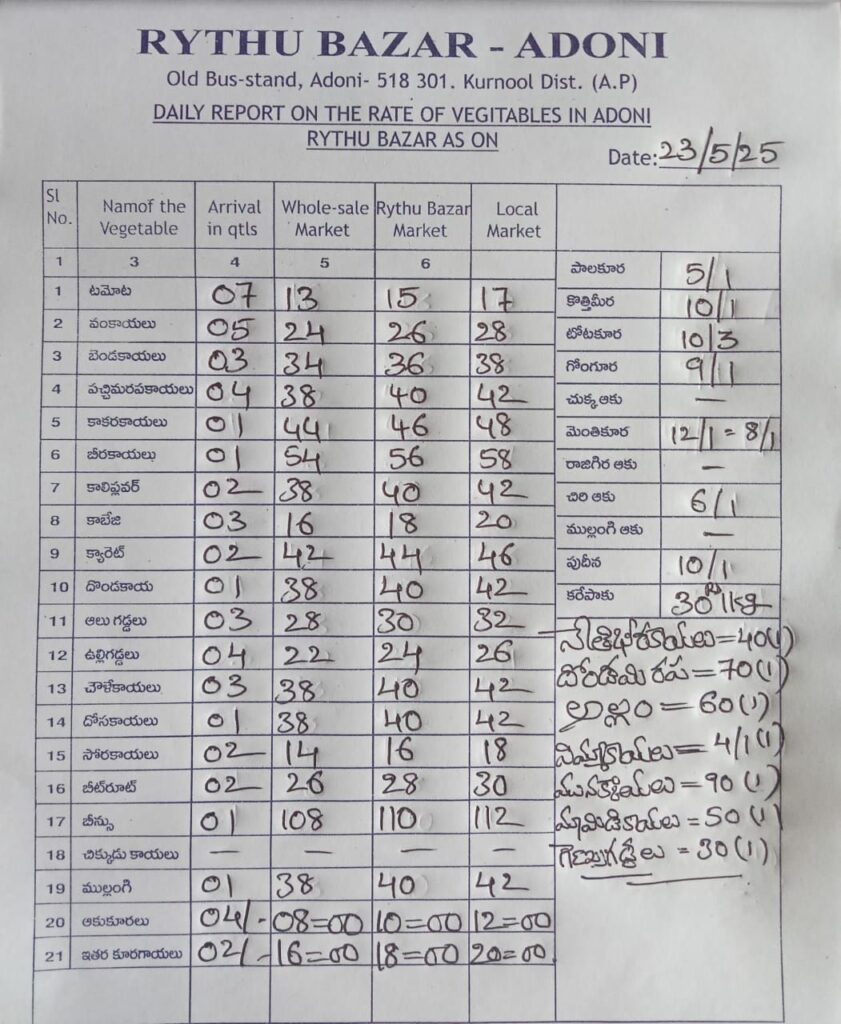 RYTHU BAZAR - ADONI
Old Bus-stand, Adoni- 518 301. Kurnool Dist. (A.P)
DAILY REPORT ON THE RATE OF VEGITABLES IN ADONI
RYTHU BAZAR AS ON
Date: 23/5/25
Sl No. Namof the Vegetable Arrival in qtls Whole-sale Market Rythu Bazar Market Local Market
1 3 4 5 6
1 టమోట 07 13 15 17
2 వంకాయలు 05 24 26 28
3 బెండకాయలు 03 34 36 38
4 పచ్చిమరపకాయలు 04 38 40 42
5 కాకరకాయలు 01 44 46 48
6 బీరకాయలు 01 54 56 58
7 కాలిఫ్లవర్ 02 38 40 42
8 కాబేజి 03 16 18 20
9 క్యారెట్ 02 42 44 46
10 దొండకాయ 01 38 40 42
11 ఆలు గడ్డలు 03 28 30 32
12 ఉల్లిగడ్డలు 04 22 24 26
13 చౌళేకాయలు 03 38 40 42
14 దోసకాయలు 01 38 40 42
15 సోరకాయలు 02 14 16 18
16 బీట్‌రూట్ 02 26 28 30
17 బీన్సు 01 108 110 112
18 చిక్కుడు కాయలు — — — —
19 ముల్లంగి 01 38 40 42
20 ఆకుకూరలు 04/- 08=00 10=00 12=00
21 ఇతర కూరగాయలు 02/- 16=00 18=00 20=00
పాలకూర 5/1
కొత్తిమీర 10/1
టోటకూర 10/3
గోంగూర 9/1
చుక్క ఆకు —
మెంతికూర 12/1 = 8/1
రాజిగిర ఆకు —
చిరి ఆకు 6/1
ముల్లంగి ఆకు —
పుదీన 10/1
కరేపాకు 30 Rs 1kg
= 40(1)
= 70(1)
అల్లం = 60(1)
నిమ్మకాయలు = 4/1(1)
మునక్కాయలు = 90(1)
మామిడికాయలు = 50(1)
గెణుసుగడ్డలు = 30(1)